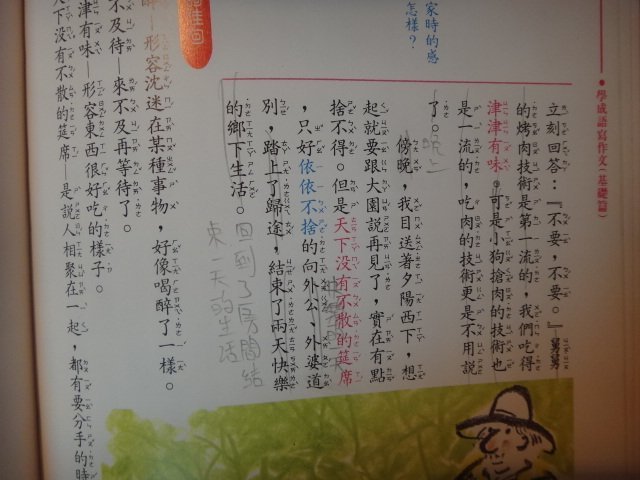 學成語寫作文(基礎篇)
家時的感
怎樣?
立刻回答:『不要,不要。』舅舅
的烤肉技術是第一流的,我們吃得
津津有味。可是小狗搶肉的技術也
是一流的,吃肉的技術更是不用說
了。
晚上
傍晚,我目送著夕陽西下,想
起就要跟大園說再見了,實在有點
捨不得。但是天下沒有不散的筵席
,只好依依不捨的向外公、外婆道
別,踏上了歸途,結束了兩天快樂
的鄉下生活。
回到了房間結
束一天的生活
形容沈迷在某種事物,好像喝醉了一樣。
不及待—來不及再等待了。
津有味—形容東西很好吃的樣子。
下沒有不散的筵席—是說人相聚在一起,都有要分手的時